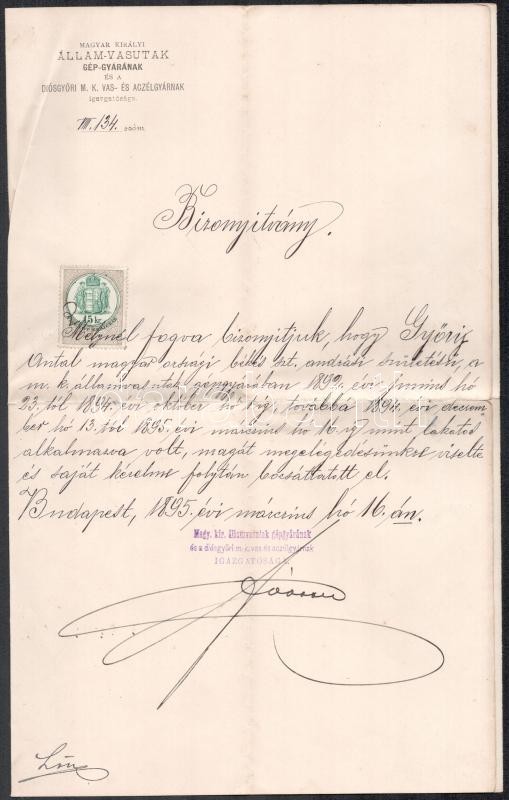 MAGYAR KIRÁLYI
ÁLLAM-VASUTAK
GÉP-GYÁRÁNAK
ÉS A
DIÓSGYŐRI M. K. VAS- ÉS ACZÉLGYÁRNAK
igazgatósága.
III. 134. szám.
Bizonyitvány.
15 kr
Melynél fogva bizonyitjuk, hogy Győriy
Antal magyar országi békés szt. andrási születésü, a
m. k. államvasutak gépgyárában 1892. évi Junius hó
23. tól 1894. évi október hó ig, továbba 1894. évi decem
ber hó 13. tól 1895. évi márczius hó 16. ig mint lakatos
alkalmazva volt, magát megelégedésünkre viselte
és saját kérelme folytán bocsáttatott el.
Budapest, 1895. évi márczius hó 16. án.
Magy. kir. államvasutak gépgyárának
és a diósgyőri m. k. vas és aczélgyárnak
IGAZGATÓSÁGA.